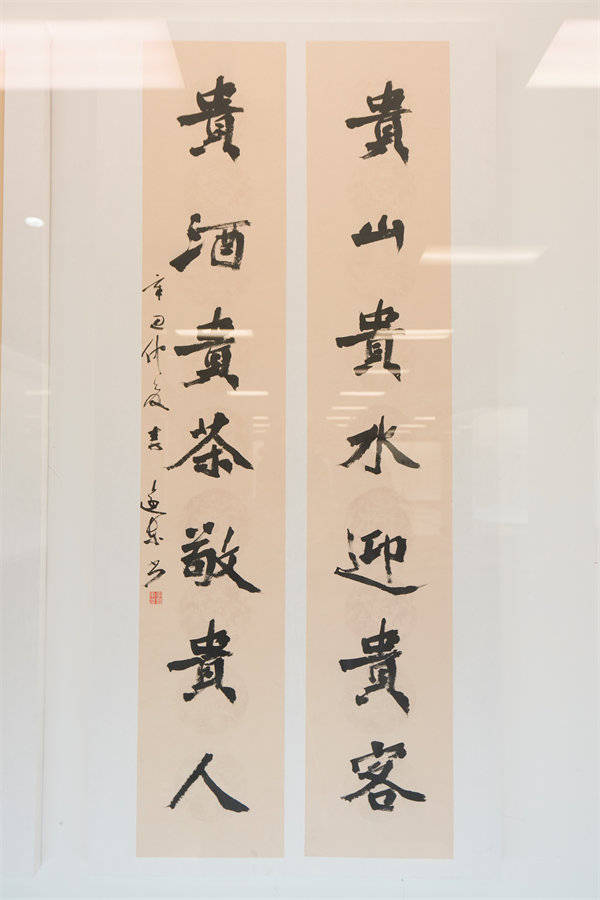 貴山貴水迎貴客
貴酒貴茶敬貴人
辛丑仲夏